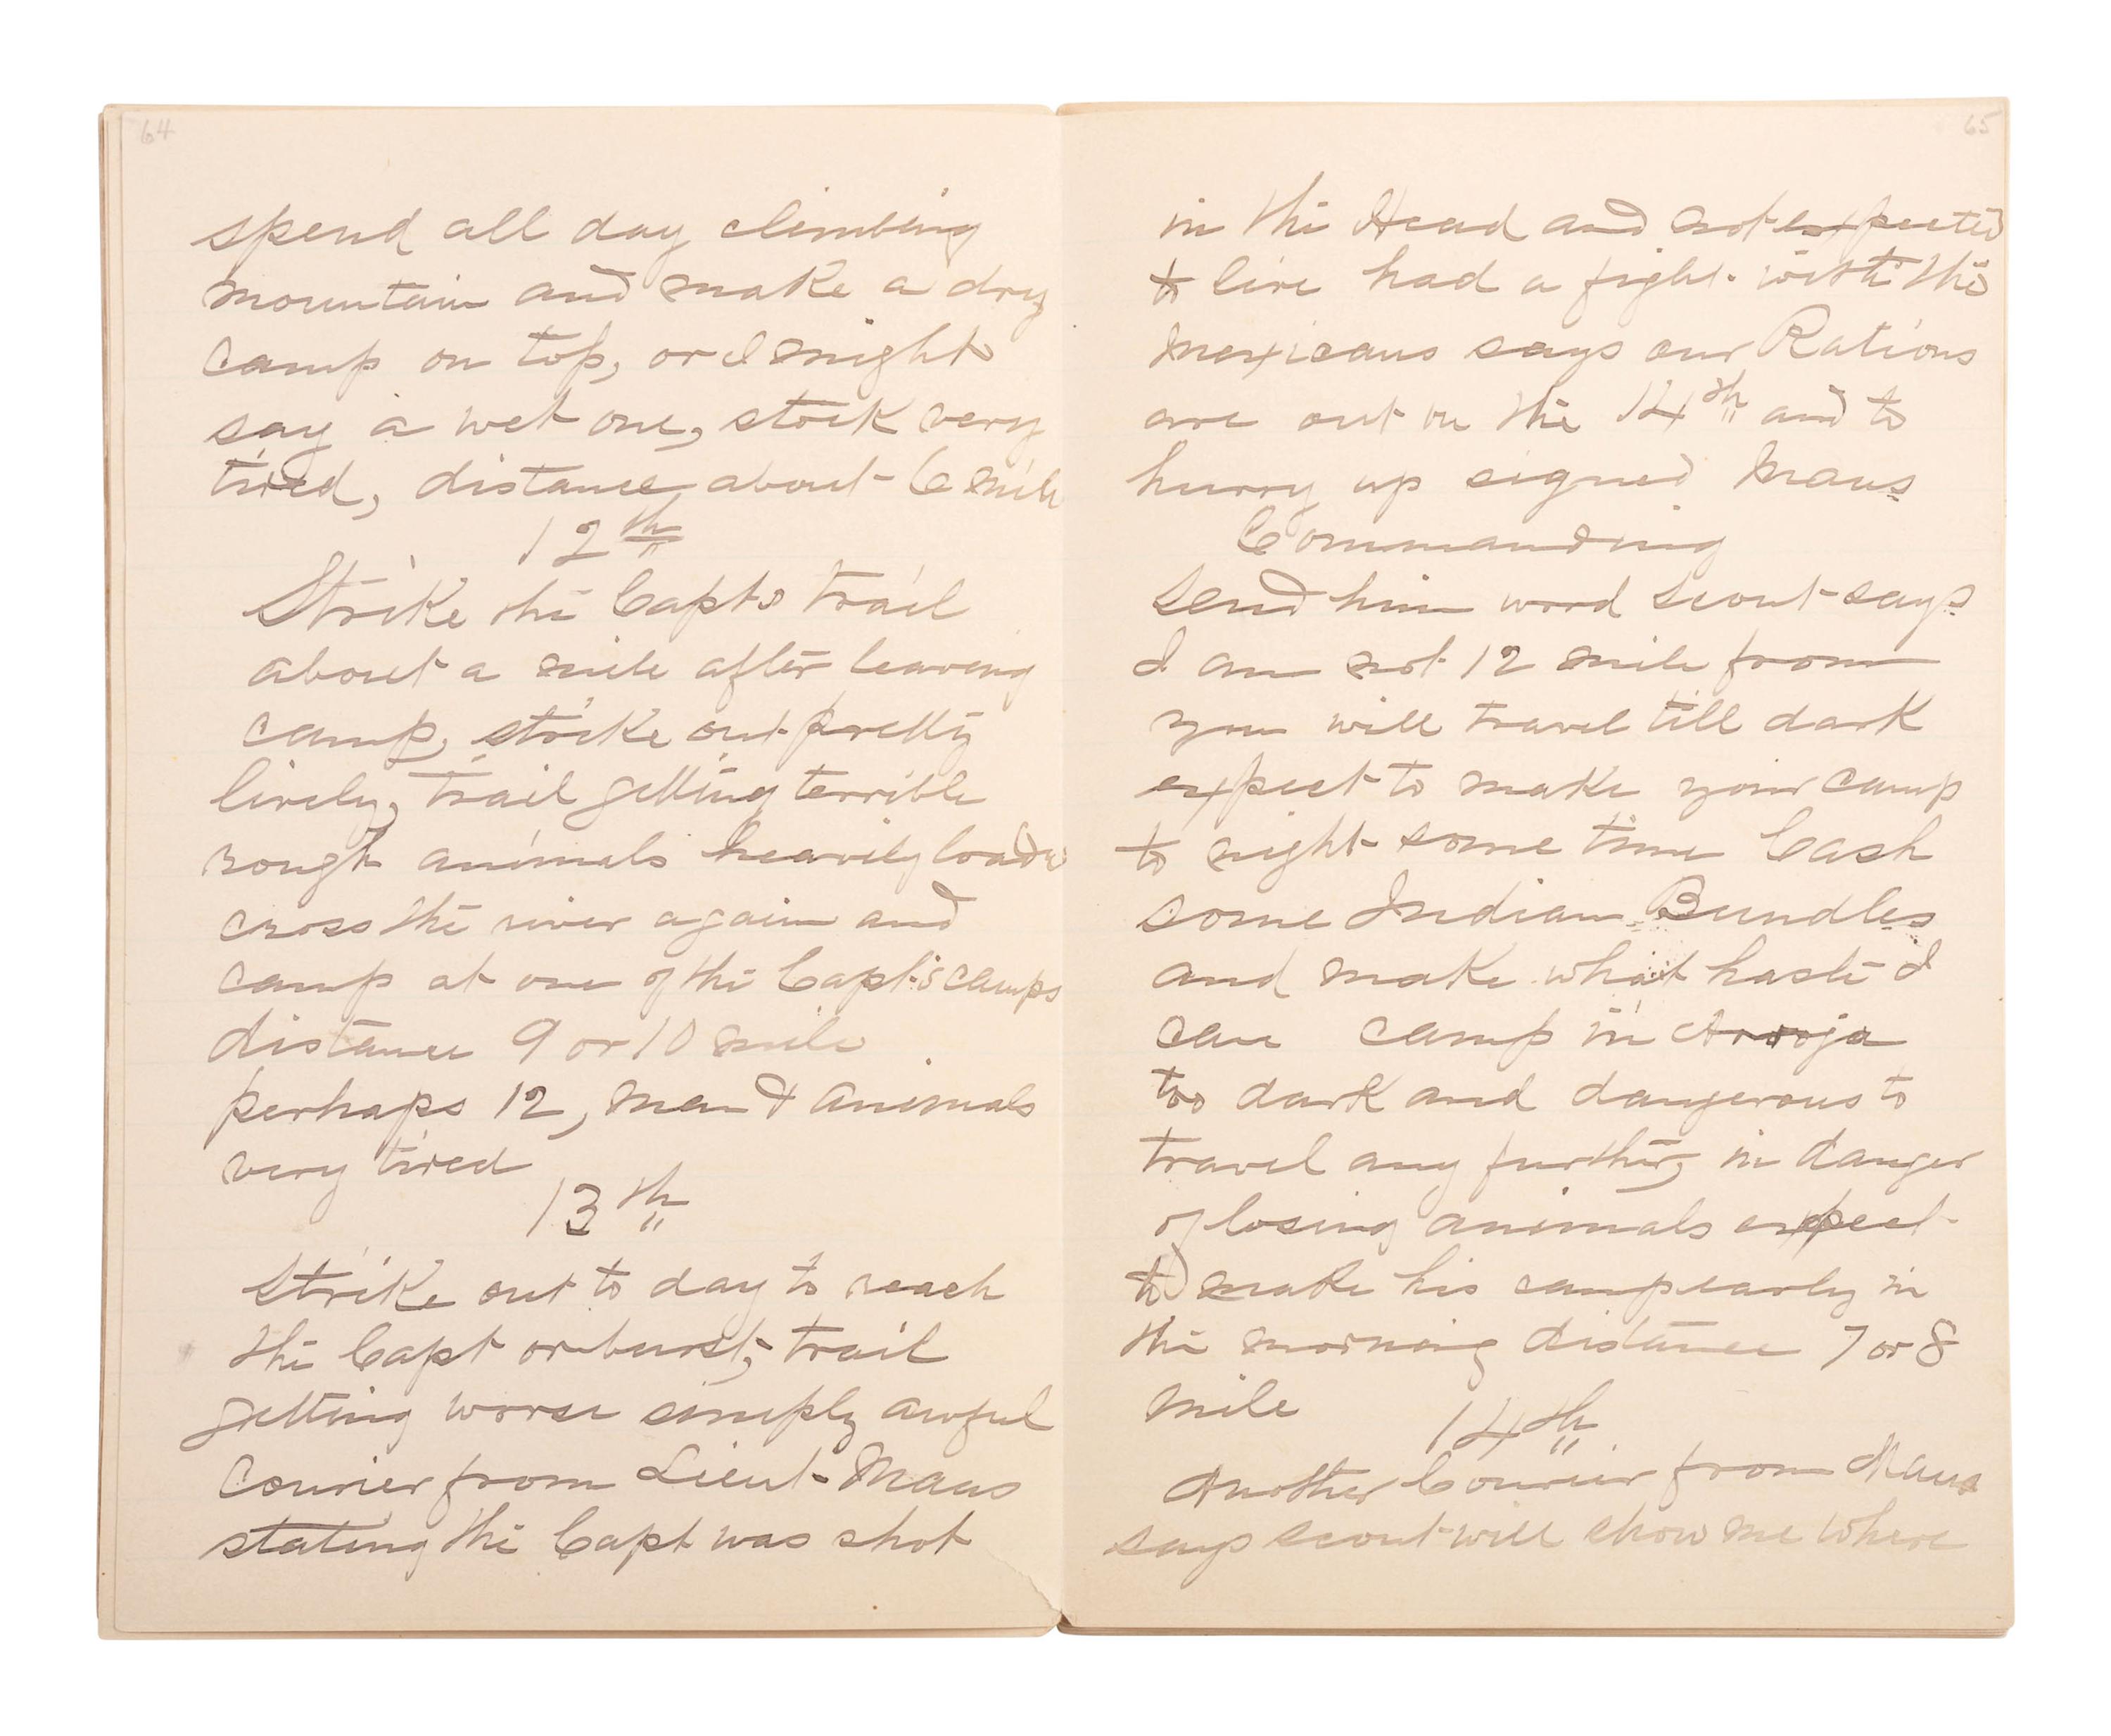 64
spend all day climbing
mountain and make a dry
camp on top, or I might
say a wet one, stock very
tired, distance about 6 mile
12th
Strike the Capts trail
about a mile after leaving
camp, strike out pretty
lively, trail getting terrible
rough animals heavily loaded
cross the river again and
camp at one of the Capt's camps
distance 9 or 10 mile
perhaps 12, men & animals
very tired
13th
Strike out to day to reach
the Capt or burst, trail
getting worse simply awful
Courier from Lieut Maus
stating the Capt was shot
65
in the Head and not expected
to live had a fight with the
Mexicans says our Rations
are out on the 14th and to
hurry up signed Maus
Commanding
Send him word scout says
I am not 12 mile from
you will travel till dark
expect to make your camp
to night some time Cash
some Indian Bundles
and make what haste I
can camp in Arroja
too dark and dangerous to
travel any further, in danger
of losing animals expect
to make his camp early in
the morning distance 7 or 8
mile
14th
Another Courier from Maus
says scout will show me where